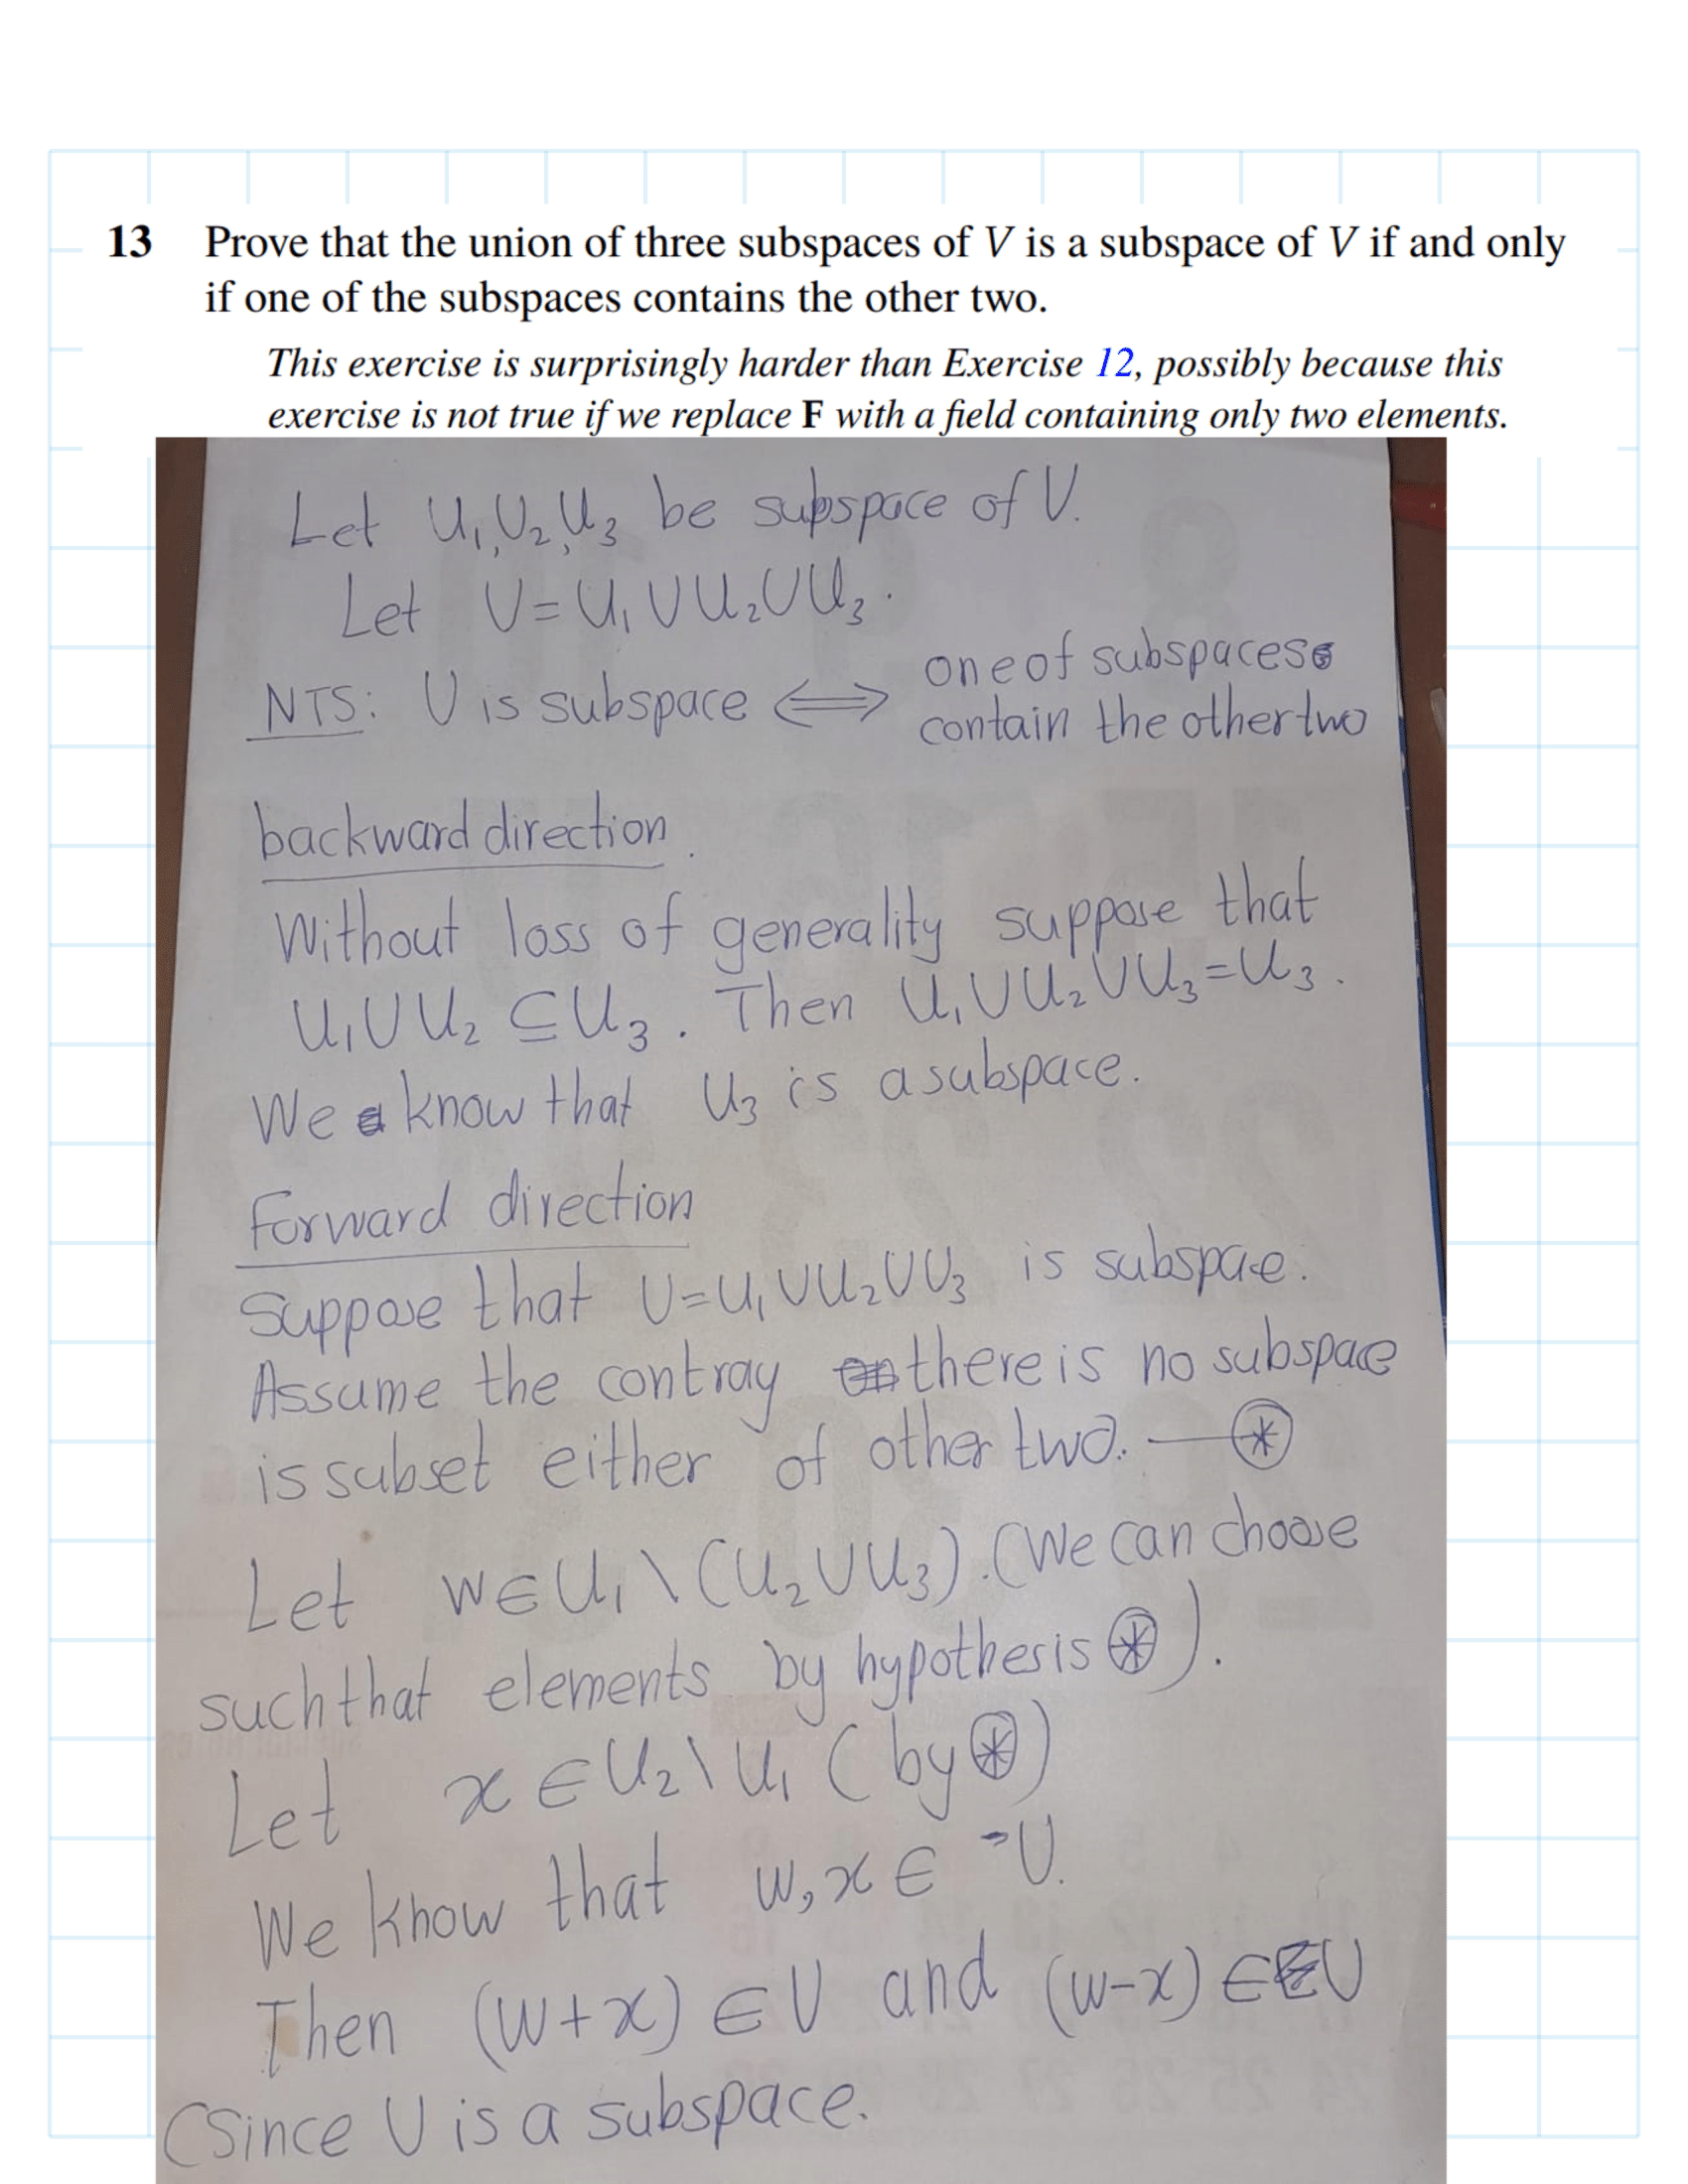 13 Prove that the union of three subspaces of V is a subspace of V if and only
if one of the subspaces contains the other two.
This exercise is surprisingly harder than Exercise 12, possibly because this
exercise is not true if we replace F with a field containing only two elements.
Let U₁, U₂, U₃ be subspace of V.
Let U = U₁ ∪ U₂ ∪ U₃.
NTS: U is subspace ⟺ one of subspaces
contain the other two
backward direction.
Without loss of generality suppose that
U₁ ∪ U₂ ⊆ U₃. Then U₁ ∪ U₂ ∪ U₃ = U₃.
We know that U₃ is a subspace.
Forward direction
Suppose that U = U₁ ∪ U₂ ∪ U₃ is subspace.
Assume the contray there is no subspace
is subset either of other two. — ⊛
Let w ∈ U₁ \ (U₂ ∪ U₃). (We can choose
such that elements by hypothesis ⊛).
Let x ∈ U₂ \ U₁ (by ⊛)
We know that w, x ∈ U.
Then (w+x) ∈ U and (w-x) ∈ U
(Since U is a subspace.